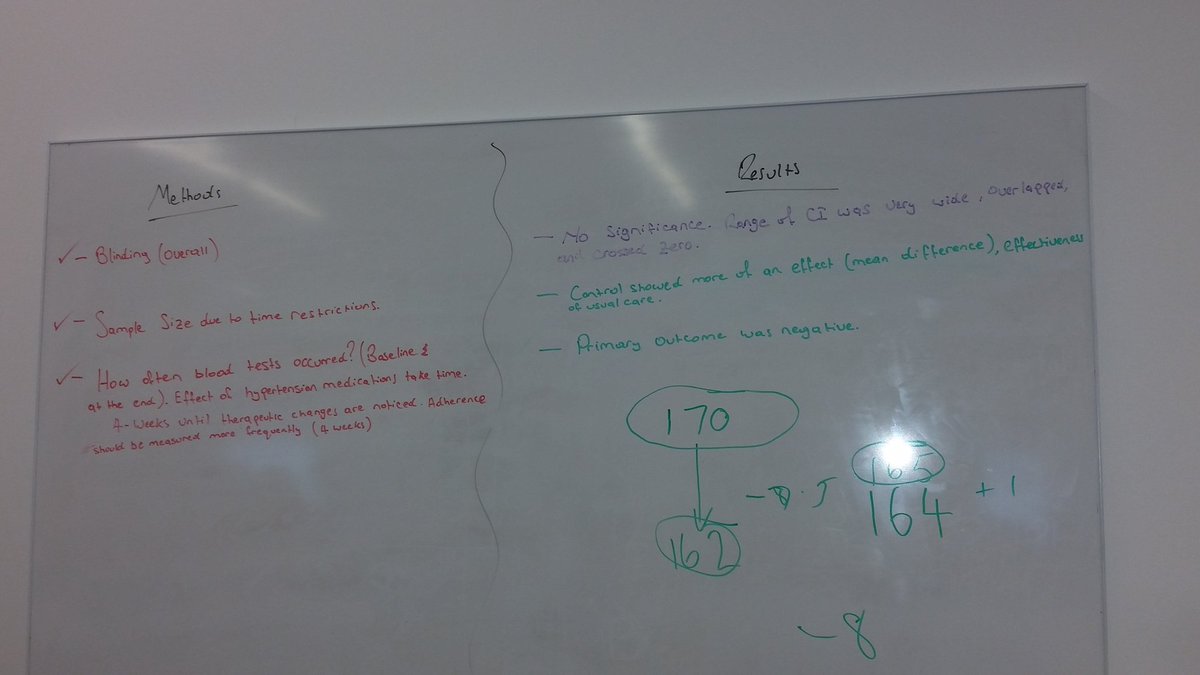 Methods
✓ - Blinding (overall)
✓ - Sample Size due to time restrictions.
✓ - How often blood tests occurred? (Baseline &
at the end). Effect of hypertension medications take time.
4-weeks until therapeutic changes are noticed. Adherence
should be measured more frequently (4 weeks)
Results
- No Significance. Range of CI was very wide, overlapped,
and crossed zero.
- Control showed more of an effect (mean difference), effectiveness
of usual care.
- Primary outcome was negative.
170
165
164 + 1
162
-8